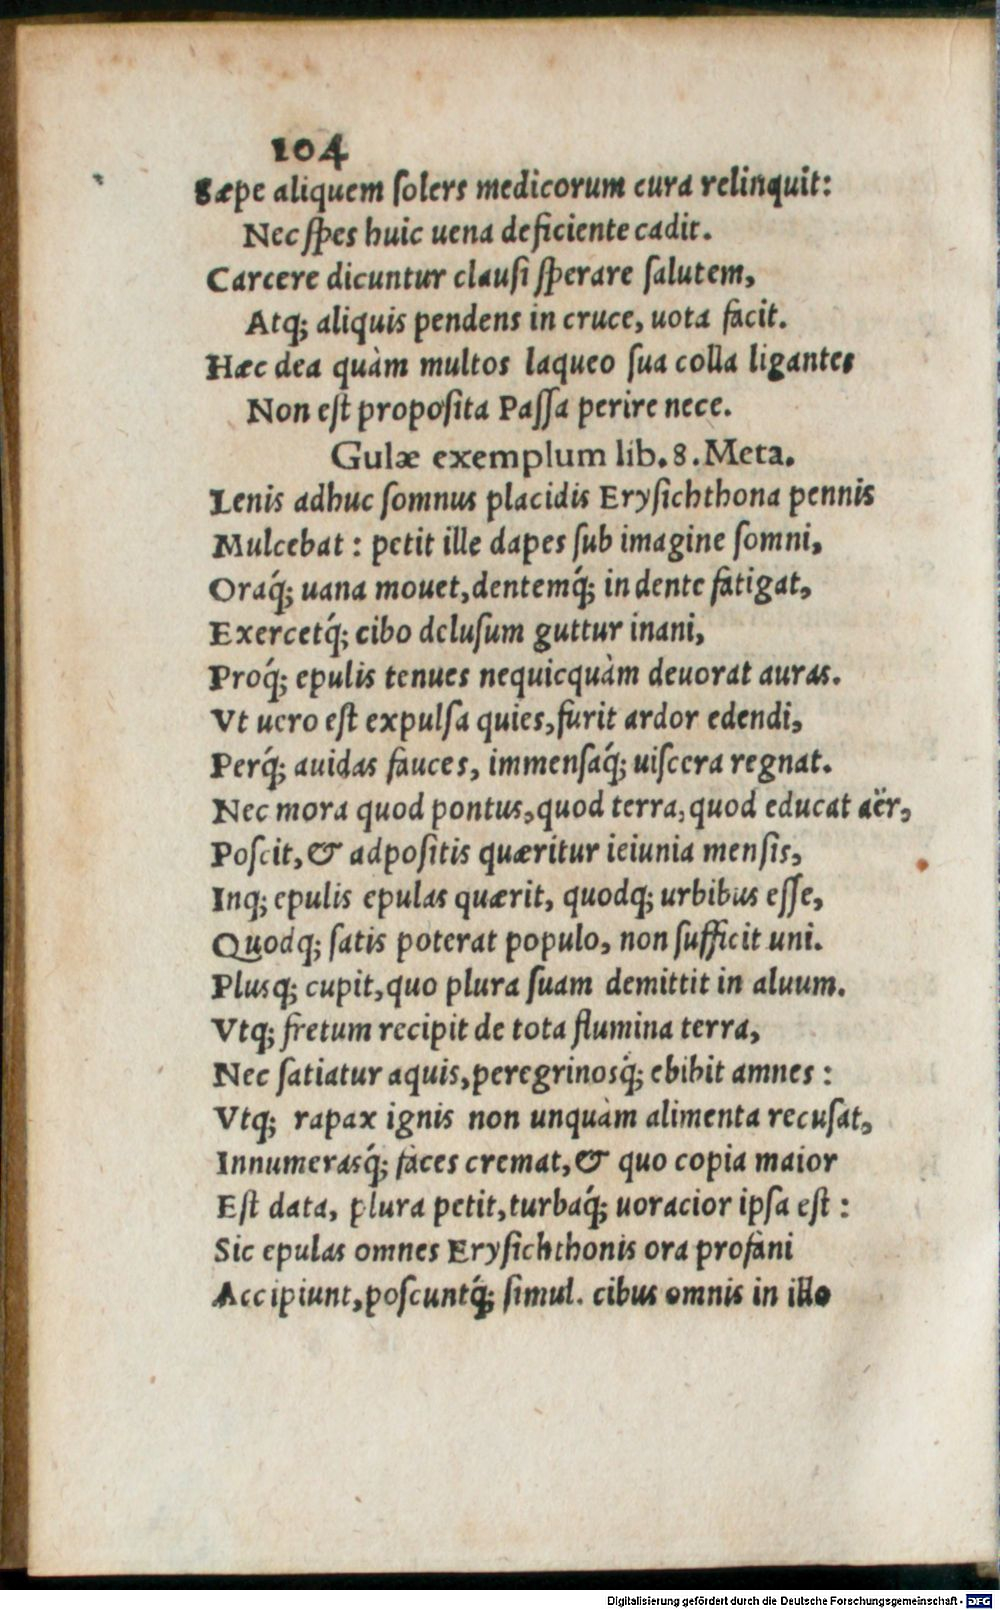 104
Sæpe aliquem ſolers medicorum cura relinquit:
Nec ſpes huic uena deficiente cadit.
Carcere dicuntur clauſi ſperare ſalutem,
Atq; aliquis pendens in cruce, uota facit.
Hæc dea quàm multos laqueo ſua colla ligantes
Non eſt propoſita Paſſa perire nece.
Gulæ exemplum lib. 8. Meta.
Lenis adhuc ſomnus placidis Eryſichthona pennis
Mulcebat: petit ille dapes ſub imagine ſomni,
Oraq́; uana mouet, dentemq́; in dente fatigat,
Exercetq́; cibo deluſum guttur inani,
Proq́; epulis tenues nequicquàm deuorat auras.
Vt uero eſt expulſa quies, furit ardor edendi,
Perq́; auidas fauces, immenſaq́; uiſcera regnat.
Nec mora quod pontus, quod terra, quod educat aër,
Poſcit, & adpoſitis quæritur ieiunia menſis,
Inq; epulis epulas quærit, quodq; urbibus eſſe,
Quodq; ſatis poterat populo, non ſufficit uni.
Plusq; cupit, quo plura ſuam demittit in aluum.
Vtq; fretum recipit de tota flumina terra,
Nec ſatiatur aquis, peregrinosq́; ebibit amnes:
Vtq; rapax ignis non unquàm alimenta recuſat,
Innumerasq́; faces cremat, & quo copia maior
Eſt data, plura petit, turbaq́; uoracior ipſa eſt:
Sic epulas omnes Eryſichthonis ora profani
Accipiunt, poſcuntq́; ſimul. cibus omnis in illo
Digitalisierung gefördert durch die Deutsche Forschungsgemeinschaft - DFG